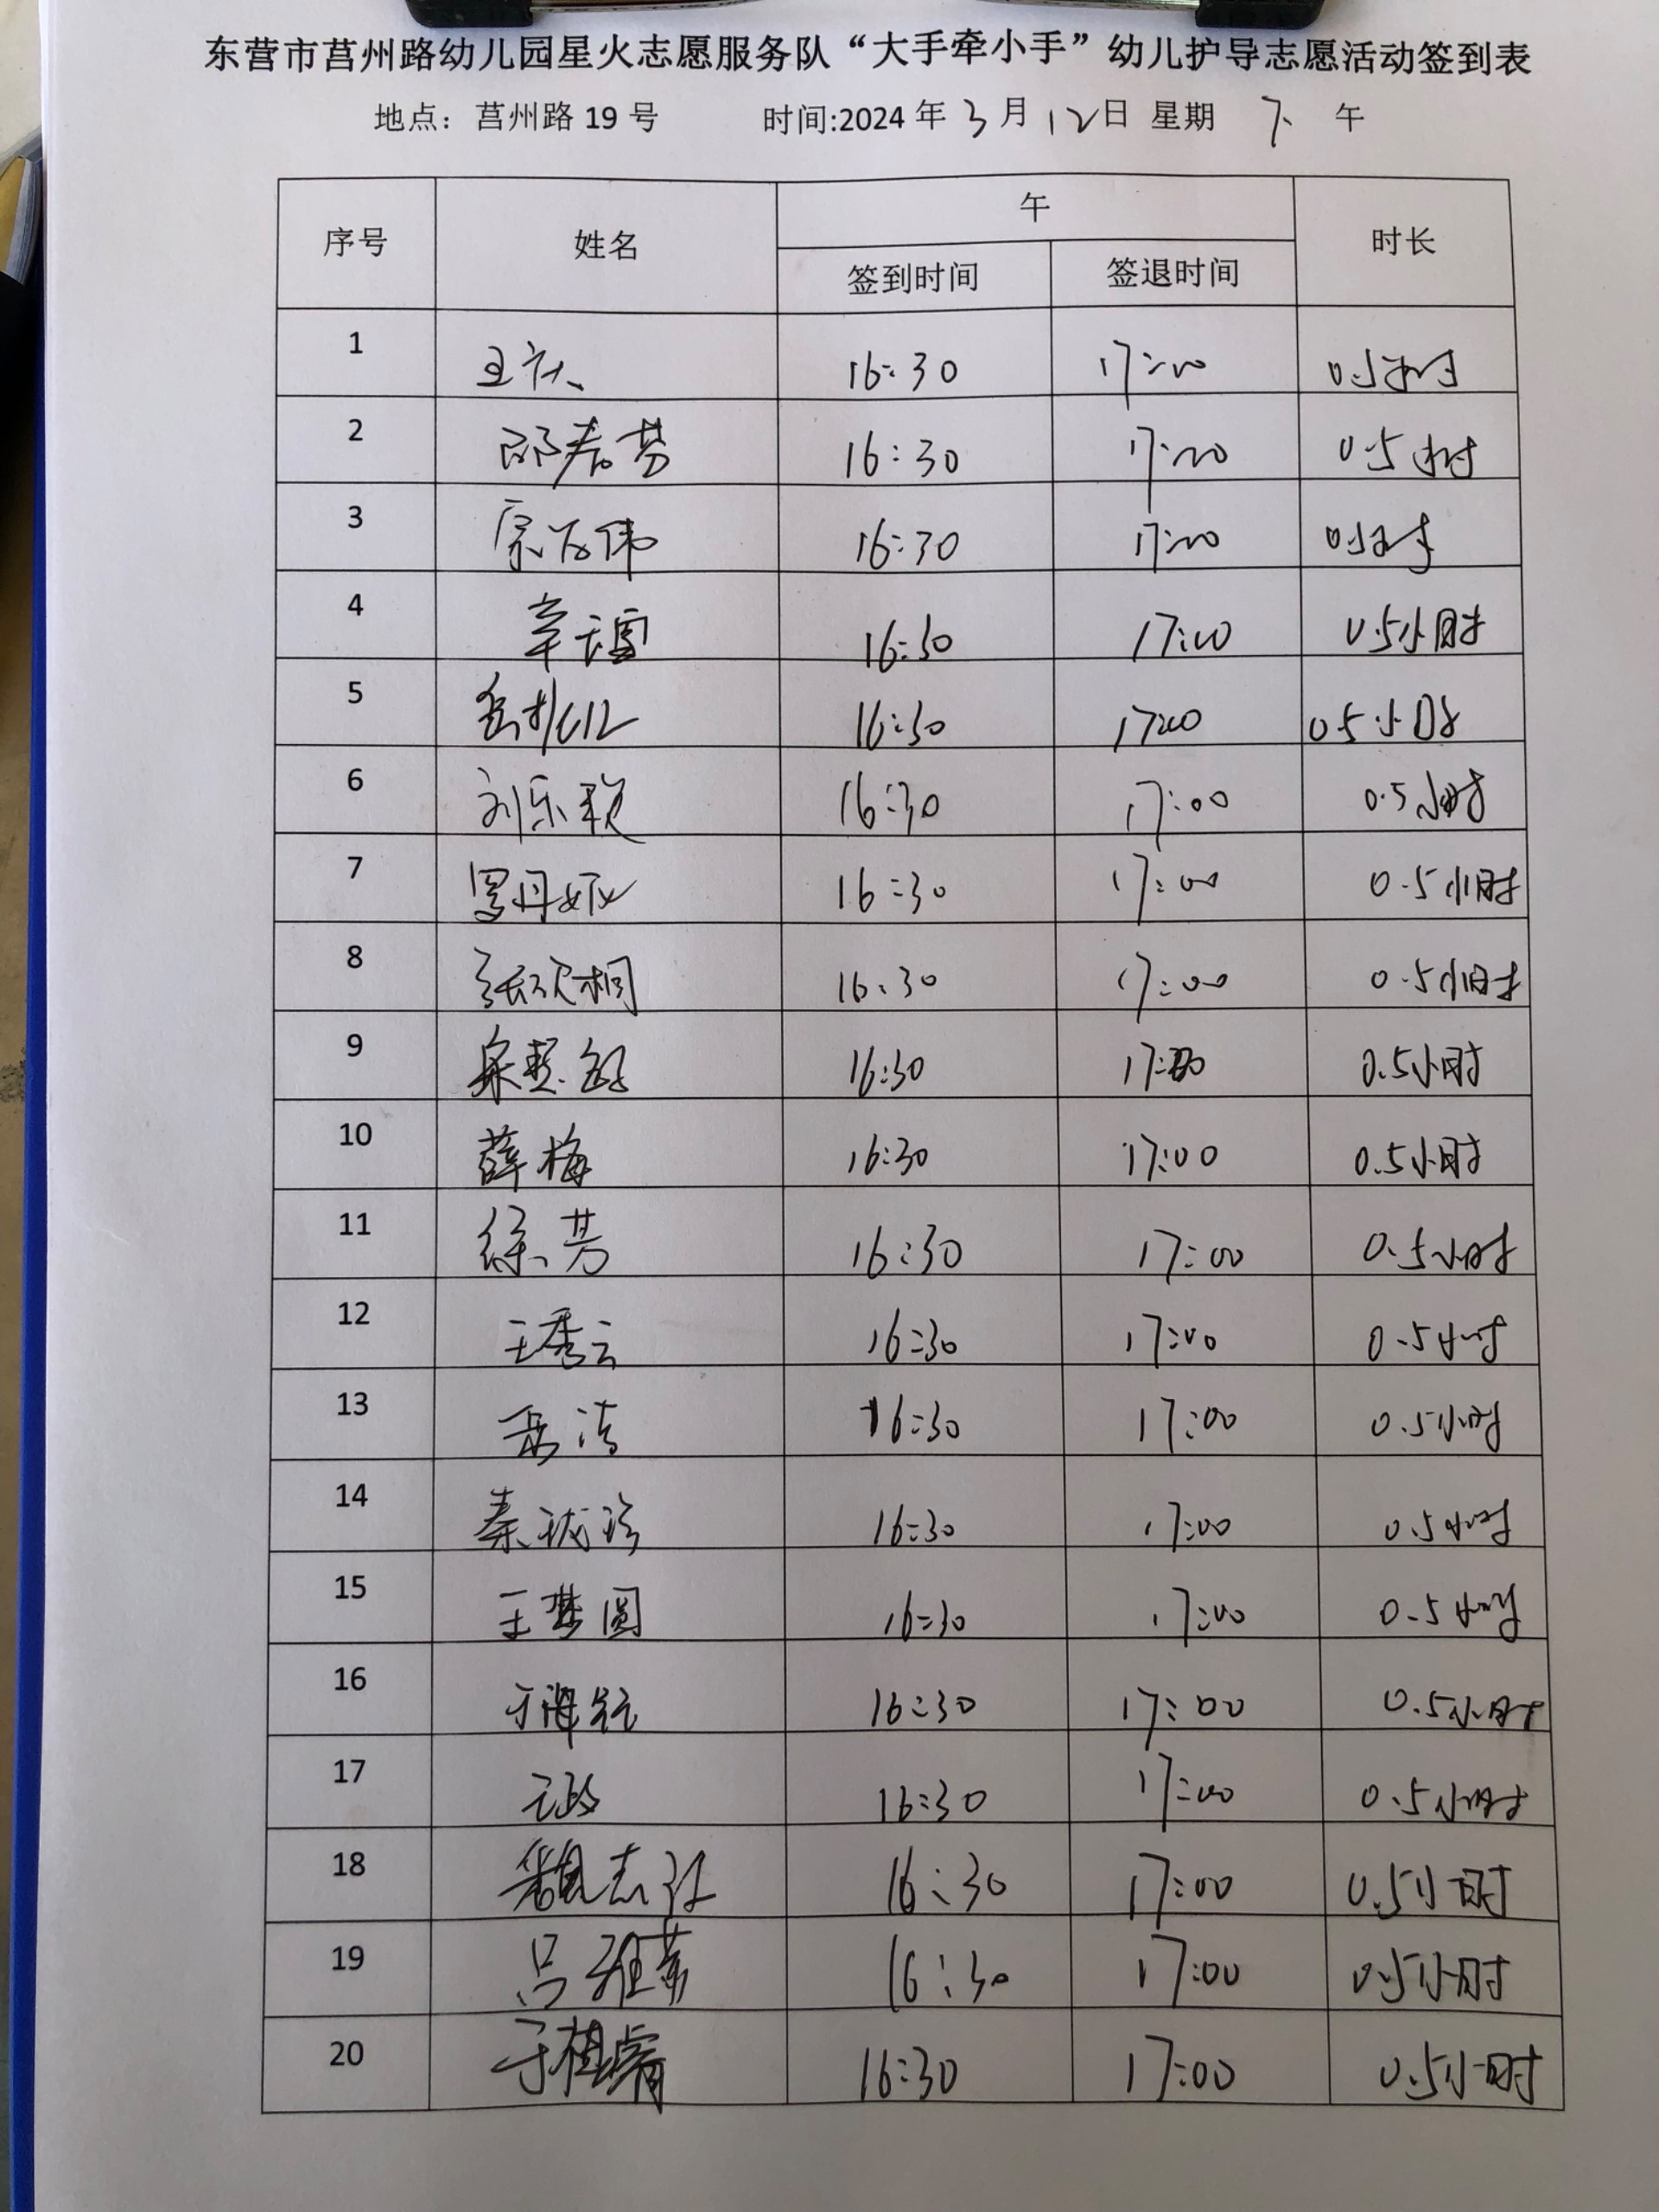 东营市莒州路幼儿园星火志愿服务队“大手牵小手”幼儿护导志愿活动签到表
地点：莒州路 19 号 时间:2024 年 3 月 12日 星期 下 午
序号 姓名 午 时长
签到时间 签退时间
1 16:30 17:00 0.5小时
2 16:30 17:00 0.5小时
3 16:30 17:00 0.5小时
4 16:30 17:00 0.5小时
5 16:30 17:00 0.5小时
6 刘乐 16:30 17:00 0.5小时
7 罗丹妮 16:30 17:00 0.5小时
8 张欣桐 16:30 17:00 0.5小时
9 16:30 17:00 0.5小时
10 薛梅 16:30 17:00 0.5小时
11 徐芳 16:30 17:00 0.5小时
12 王秀云 16:30 17:00 0.5小时
13 16:30 17:00 0.5小时
14 秦 16:30 17:00 0.5小时
15 王梦圆 16:30 17:00 0.5小时
16 16:30 17:00 0.5小时
17 16:30 17:00 0.5小时
18 魏志 16:30 17:00 0.5小时
19 吕雅 16:30 17:00 0.5小时
20 于植睿 16:30 17:00 0.5小时